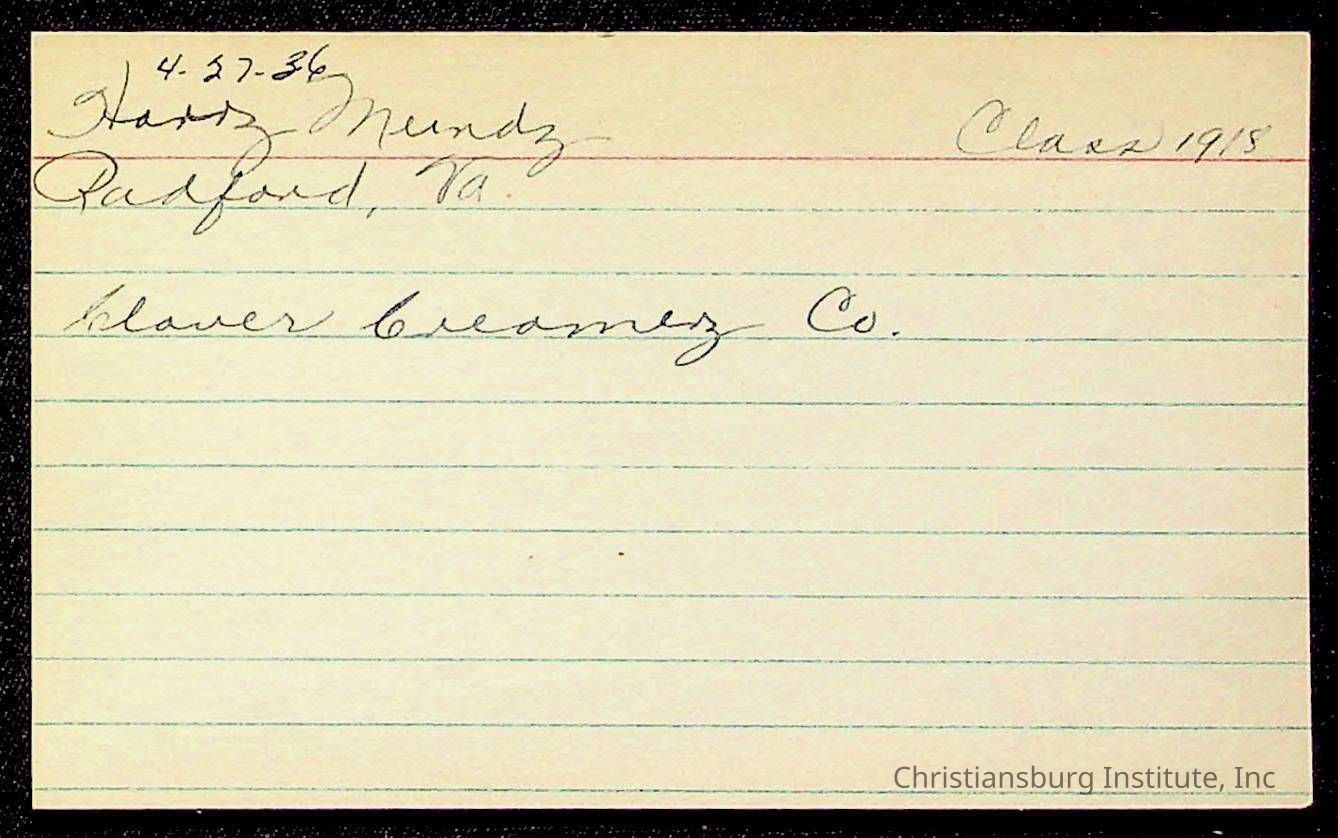 4-27-36
Harry Mundy Class 1918
Radford, Va.
Clover Creamery Co.
Christiansburg Institute, Inc